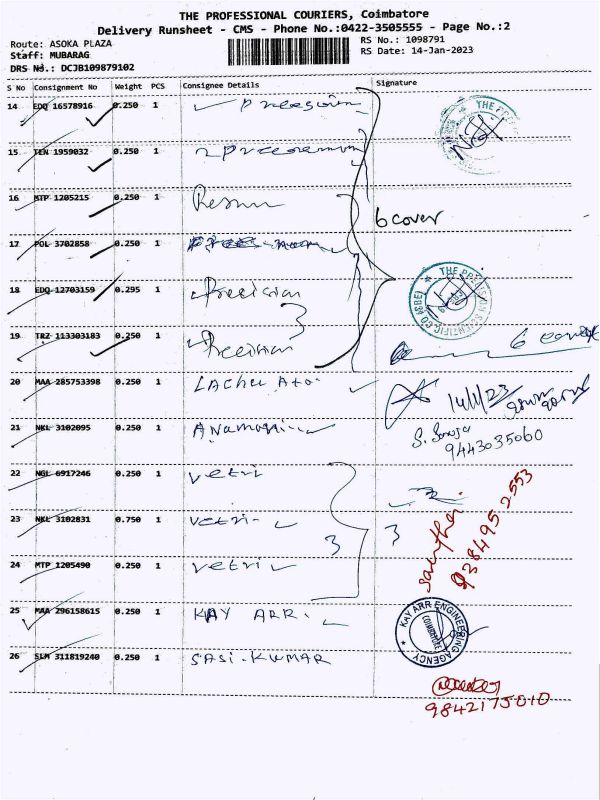 THE PROFESSIONAL COURIERS, Coimbatore
Delivery Runsheet - CMS - Phone No.:0422-3505555 - Page No.:2
Route: ASOKA PLAZA
RS No.: 1098791
Staff: MUBARAG
RS Date: 14-Jan-2023
DRS No.: DCJB109879102
S No Consignment No Weight PCS Consignee Details Signature
14 EDQ 16578916 0.250 1 Precision
THE PRECI
15 TEN 1959032 0.250 1
16 MTP 1205215 0.250 1
6 cover
17 POL 3702858 0.250 1
18 EDQ 12703159 0.295 1 Precision
THE PRECISION SCIENTIFIC CO (CBE)
19 TRZ 113303183 0.250 1 Precision
6 cover
20 MAA 285753398 0.250 1
14/1/23
21 NKL 3102095 0.250 1
9443035060
22 NGL 6917246 0.250 1 vetri
23 NKL 3102831 0.750 1 vetri
3
3
24 MTP 1205490 0.250 1 vetri
santhei
938495 2553
25 MAA 296158615 0.250 1 KAY ARR.
KAY ARR ENGINEERING AGENCY
COIMBATORE
26 SLM 311819240 0.250 1 SASI-KUMAR
9842175010